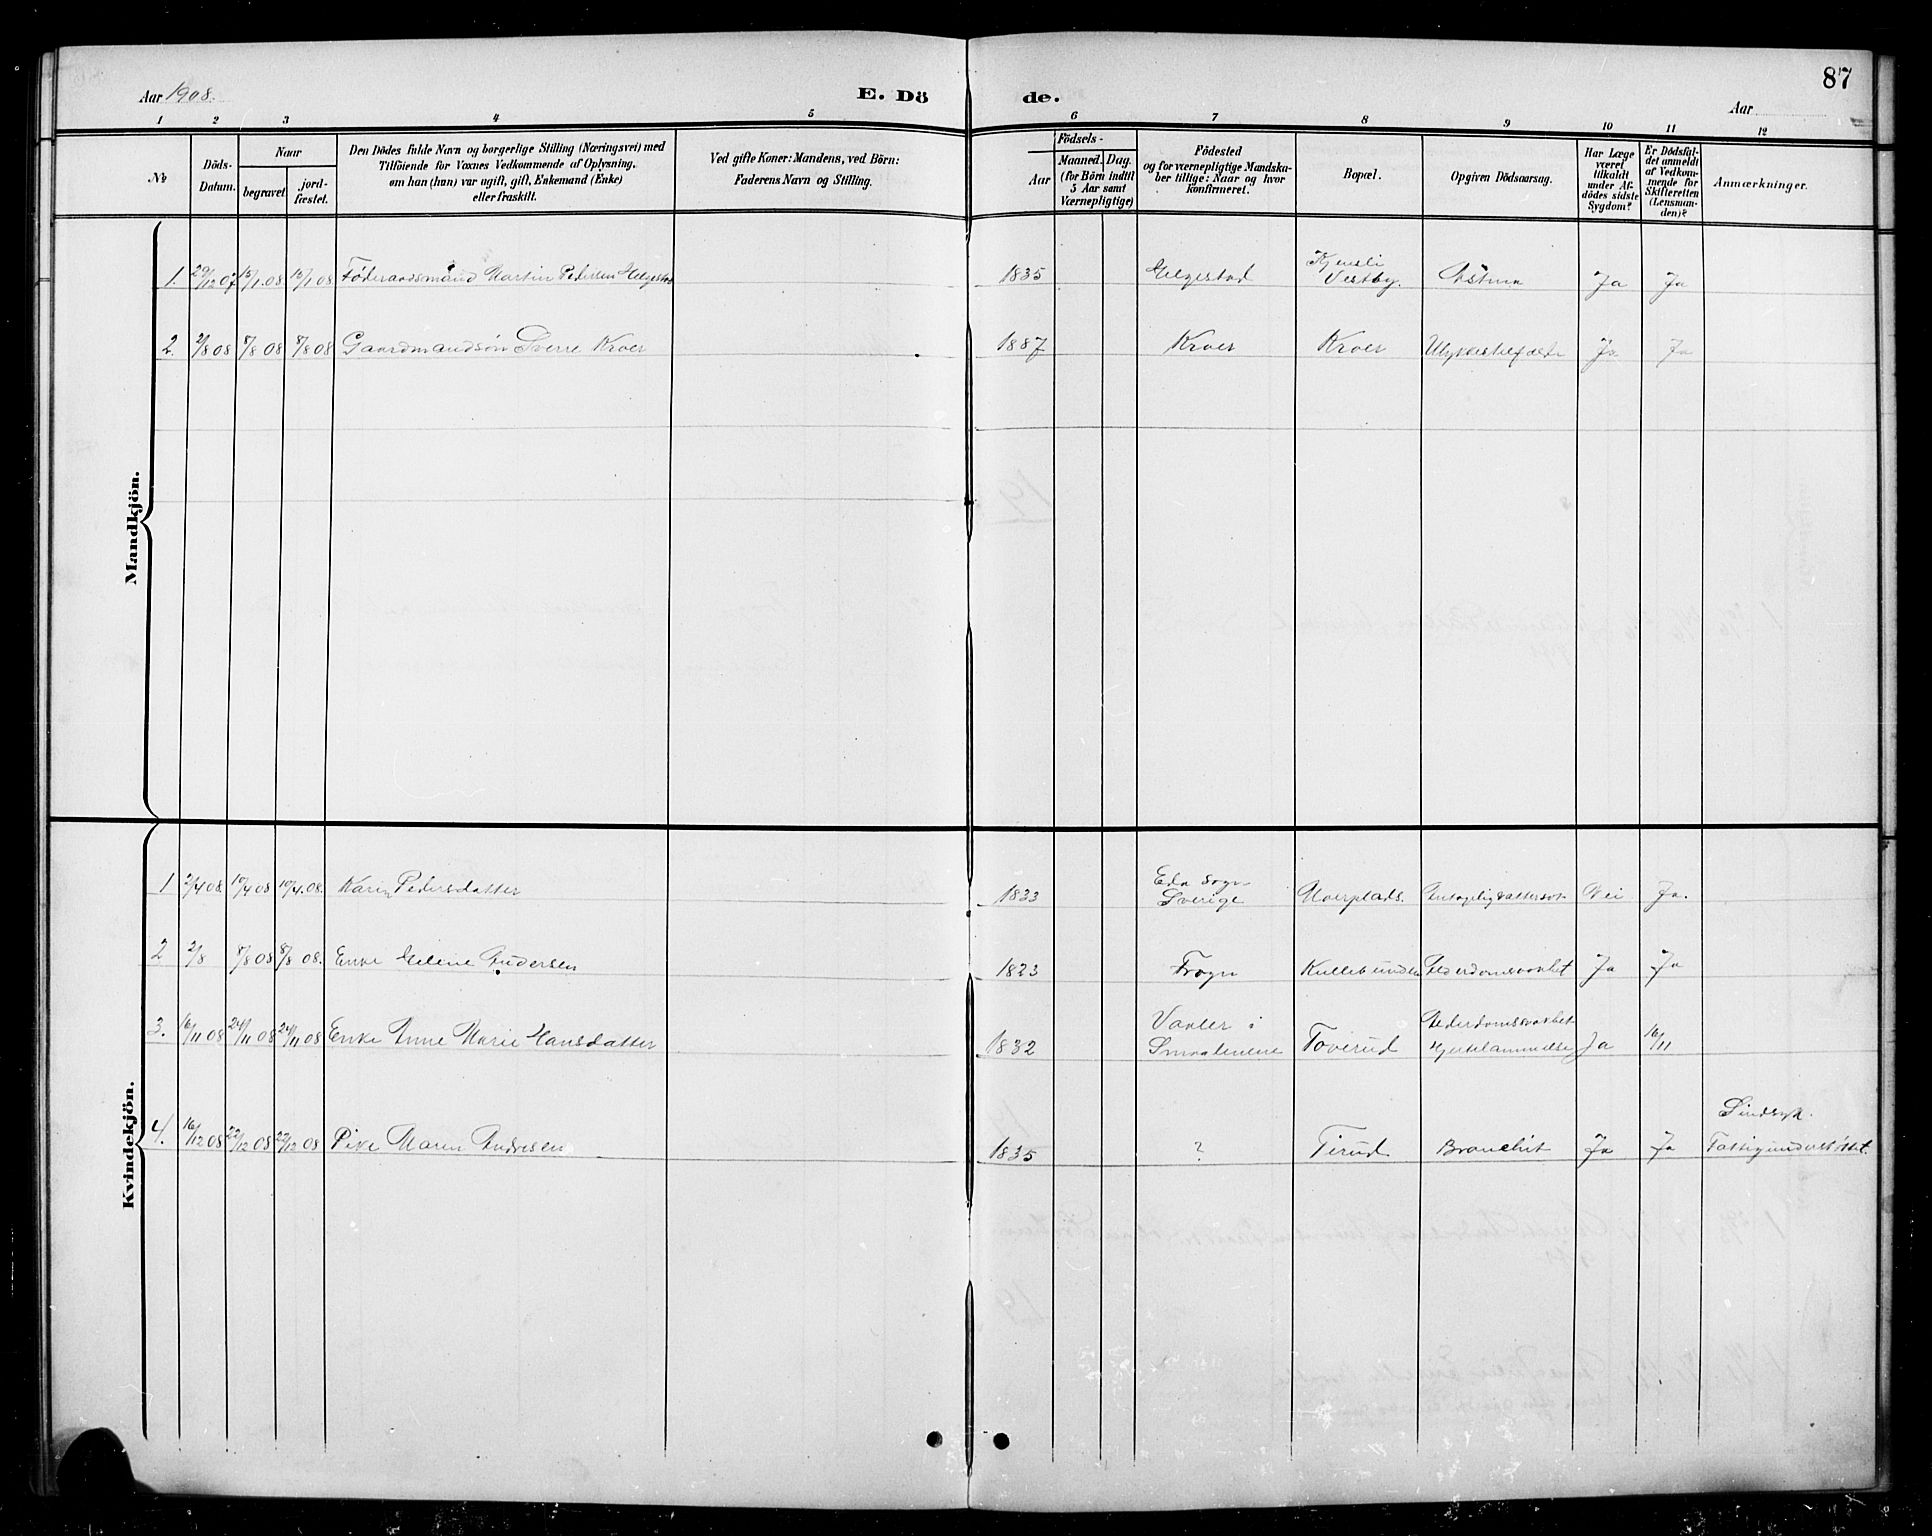 87
Aar 1908.
E. Dö de.
Aar
1 2 3 4 5 6 7 8 9 10 11 12
№
Döds-Datum.
Naar
begravet
jord-fæstet.
Den Dödes fulde Navn og borgerlige Stilling (Næringsvei) med
Tilföiende for Voxnes Vedkommende af Oplysning,
om han (hun) var ugift, gift, Enkemand (Enke)
eller fraskilt.
Ved gifte Koner: Mandens, ved Börn:
Faderens Navn og Stilling.
Födsels-
Aar
Maaned. Dag.
(for Börn indtil
5 Aar samt
Værnepligtige)
Födested
og for værnepligtige Mandska-
ber tillige: Naar og hvor
konfirmeret.
Bopæl.
Opgiven Dödsaarsag.
Har Læge
været
tilkaldt
under Af-
dödes sidste
Sygdom?
Er Dödsfal-
det anmeldt
af Vedkom-
mende for
Skifteretten
(Lensman-
den)?
Anmærkninger.
Mandkjön.
1. 29/12 07 15/1.08 15/1 08 Føderaadsmand Martin Pedersen Helgestad 1835 Helgestad Kjensli Vestby. Astma Ja Ja
2. 2/8 08 8/8 08 8/8 08 Gaardmandsøn Sverre Kroer 1887 Kroer Kroer Ulykkestilfælde Ja Ja
Kvindekjön.
1 2/4 08 10/4 08 10/4.08. Karin Pedersdatter 1833 Eda sogn Sverige Nei Ja.
2 2/8 8/8 08 8/8 08. Enke Helene Andersen 1823 Frogn Kullebunden Alderdomssvakhet Ja Ja
3. 16/11 08 24/11 08 24/11 08 Enke Anne Marie Hansdatter 1832 Vaaler i Smaalenene Toverud Alderdomssvakhet Hjertelammelse Ja 16/11
4. 16/12 08 22/12 08 22/12 08 Pike Maren Andresen 1835 ? Tirud Bronchit Ja Ja Sindsyk. Fattigunderstøttet.